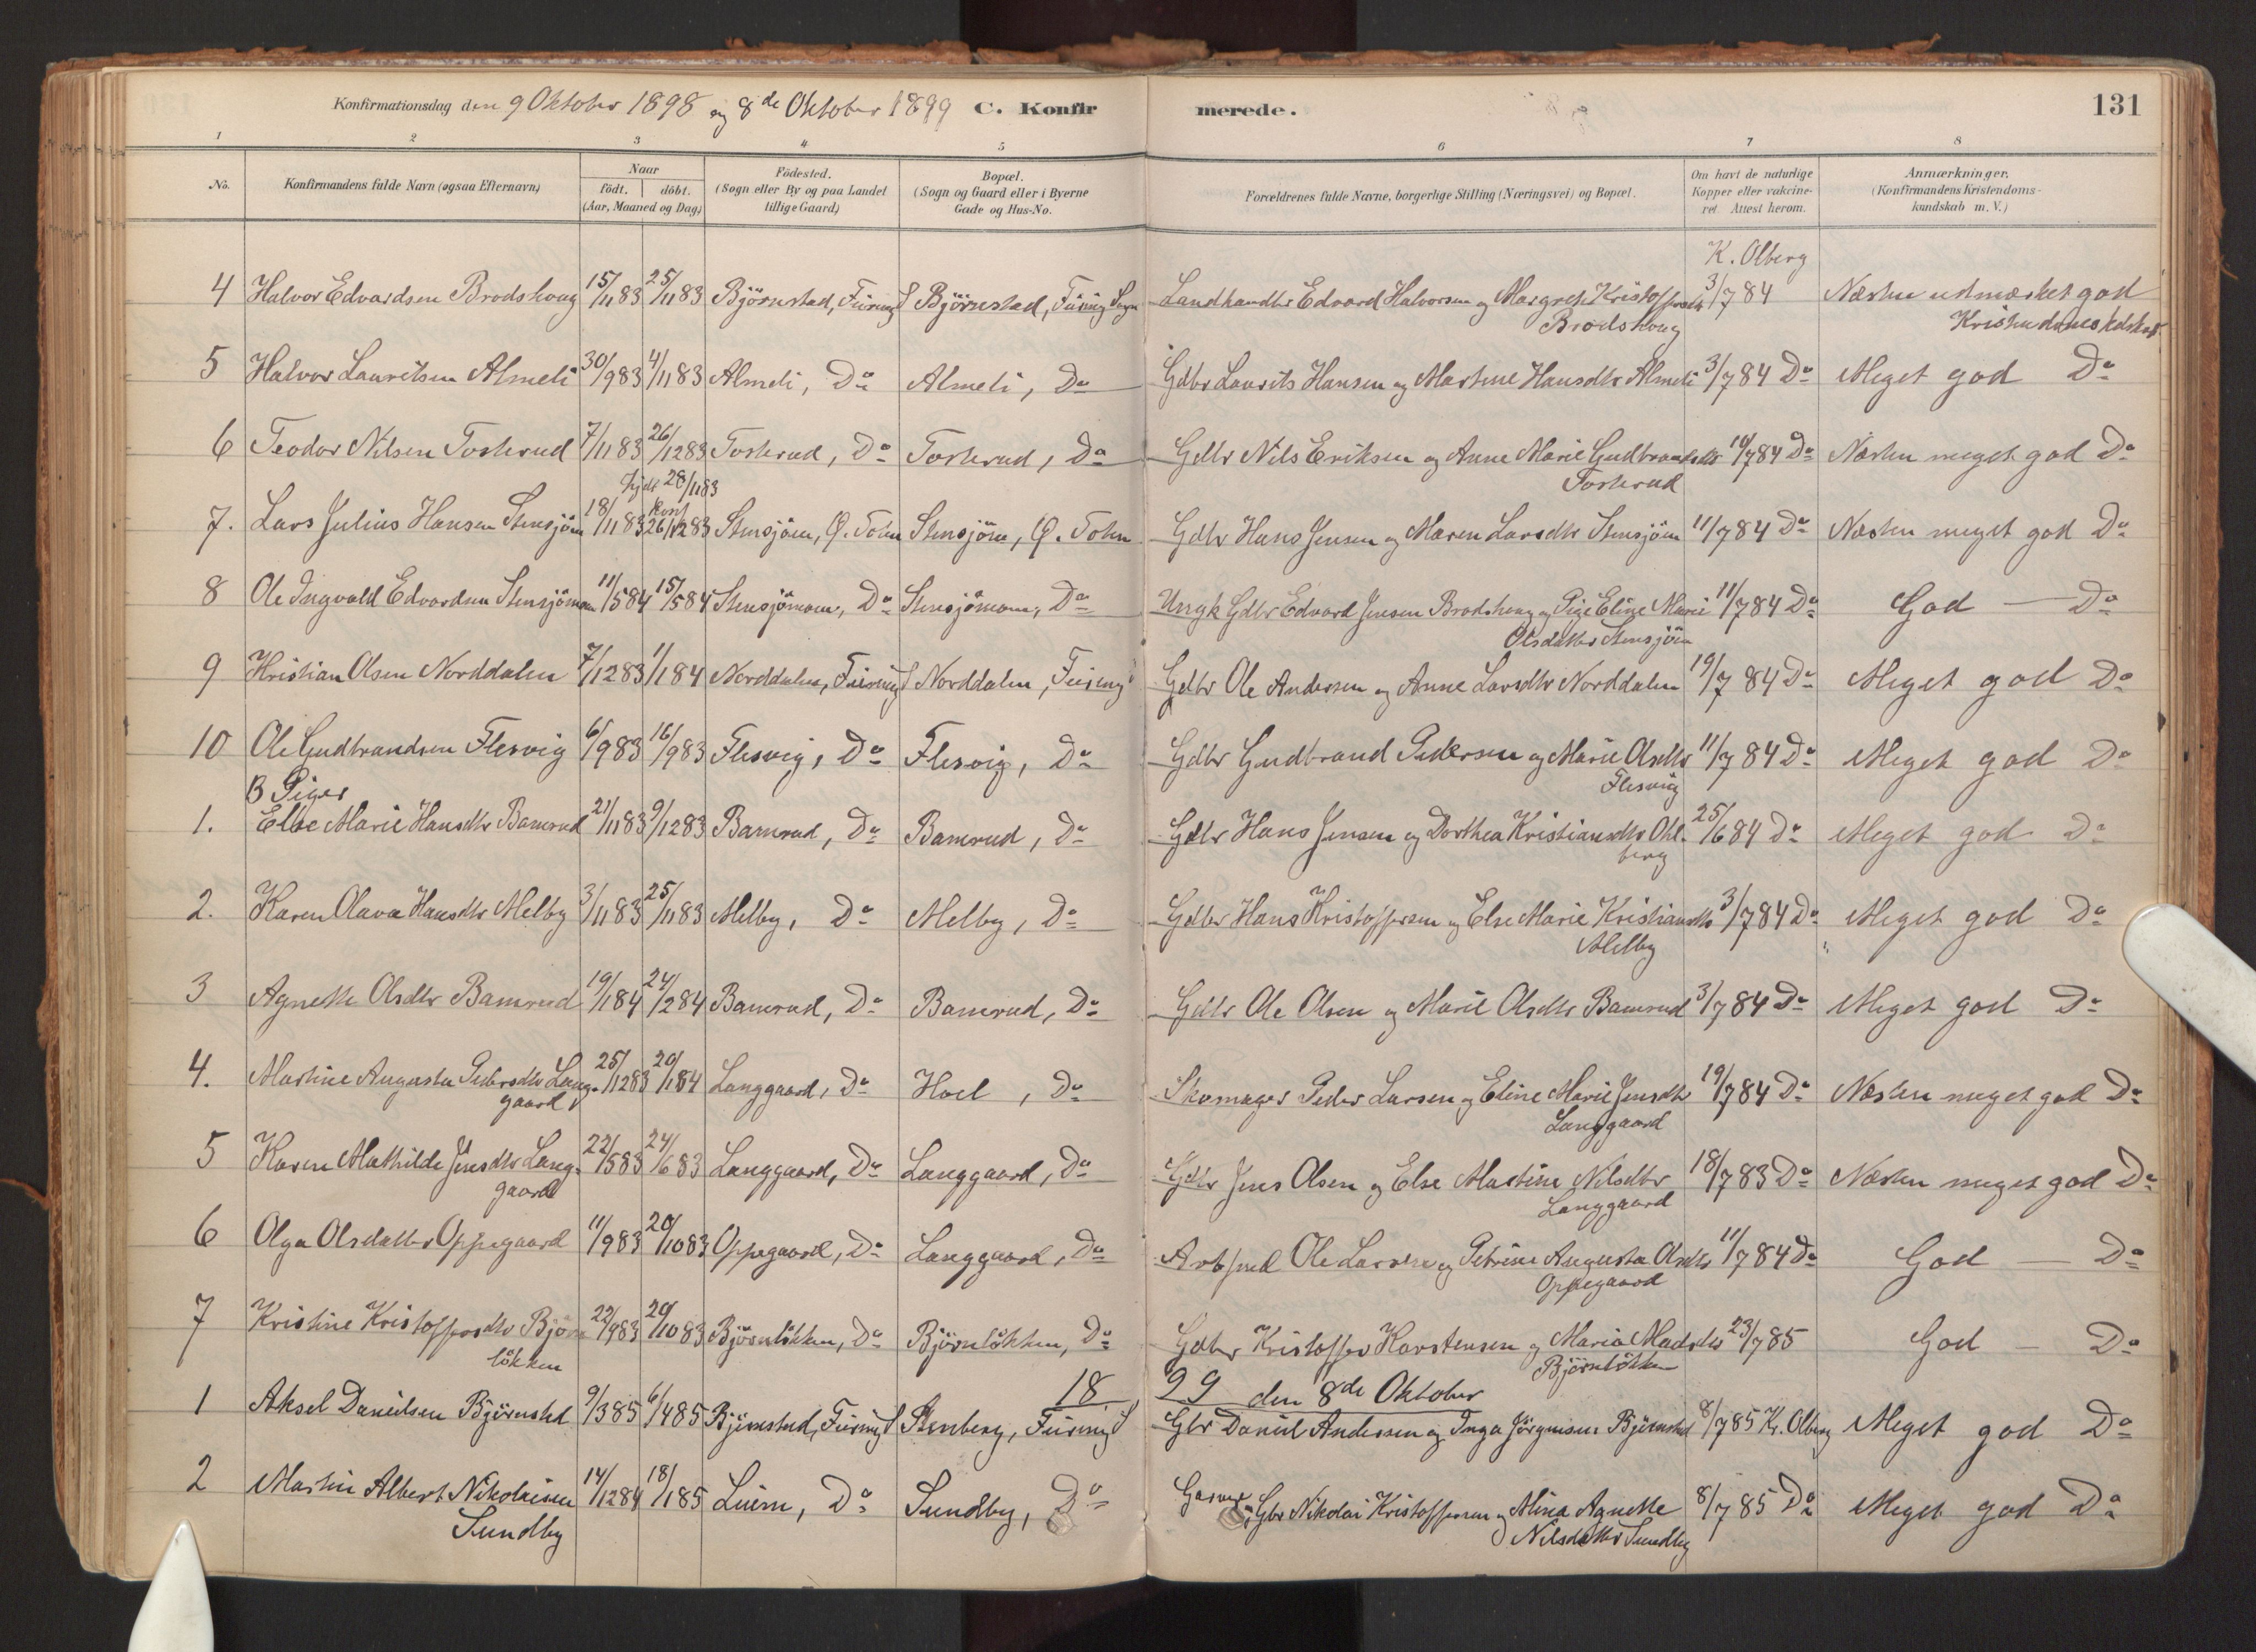 Konfirmationsdag den 9 Oktober 1898 og 8de Oktober 1899 C. Konfirmerede. 131
1 2 3 4 5 6 7 8
No. Konfirmandens fulde Navn (ogsaa Efternavn) Naar født. døbt. (Aar, Maaned og Dag) Fødested. (Sogn eller By og paa Landet tillige Gaard) Bopæl. (Sogn og Gaard eller i Byerne Gade og Hus-No. Forældrenes fulde Navne, borgerlige Stilling (Næringsvei) og Bopæl. Om havt de naturlige Kopper eller vakcineret Attest herom. Anmærkninger. (Konfirmandens Kristendomskundskab m. V.)
K. Olberg
4 Halvor Edvardsen Brodshaug 15/1183 25/1183 Bjørnstad, Furing S Bjørnestad, Furing Sogn Landhandler Edvard Halvorsen og Margrete Kristoffersdtr 3/784 Næsten udmærket god
Brodshaug Kristendomskdskab
5 Halvor Lauritsen Almeli 30/983 4/1183 Almeli, Do Almeli, Do Gdbr Laurits Hansen og Martine Hansdtr Almeli 3/784 Do Meget god Do
6 Teodor Nilsen Tosterud 7/1183 26/1283 Tosterud, Do Tosterud, Do Gdbr Nils Eriksen og Anne Marie Gudbrandsdtr 10/784 Do Næsten meget god Do
hjdt 28/1183 Tosterud
7. Lars Julius Hansen Stensjøen 18/1183 Konf 26/1283 Stensjøen, Ø. Toten Stensjøen, Ø. Toten Gdbr Hans Jensen og Maren Larsdtr Stensjøen 11/784 Do Næsten meget god Do
8 Ole Ingvald Edvardsen Stensjømoen 11/584 15/584 Stensjømoen, Do Stensjømoen, Do Ungk Gdbr Edvard Jensen Brodshaug og Pige Eline Marie 11/784 Do God — Do
Olsdatter Stensjøen
9 Kristian Olsen Norddalen 7/1283 1/184 Norddalen, Furing S Norddalen, Furing S Gdbr Ole Andersen og Anne Larsdtr Norddalen 19/784 Do Meget god Do
10 Ole Gudbrandsen Flesvig 6/983 16/983 Flesvig, Do Flesvig, Do Gdbr Gudbrand Pedersen og Marie Olsdtr 11/784 Do Meget god Do
B Piger Flesvig
1. Else Marie Hansdtr Bamrud 21/1183 9/1283 Bamrud, Do Bamrud, Do Gdbr Hans Jensen og Dorthea Kristiansdtr Ohl- 25/684 Do Meget god Do
berg
2. Karen Olava Hansdtr Melby 3/1183 25/1183 Melby, Do Melby, Do Gdbr Hans Kristoffersen og Else Marie Kristiansdtr 3/784 Do Meget god Do
Melby
3 Agnette Olsdtr Bamrud 19/184 24/284 Bamrud, Do Bamrud, Do Gdbr Ole Olsen og Marie Olsdtr Bamrud 3/784 Do Meget god Do
4. Martine Augusta Pedersdtr Lang- 25/1283 20/184 Langgaard, Do Hoel, Do Skomager Peder Larsen og Eline Marie Jensdtr 19/784 Do Næsten meget god Do
gaard Langgaard
5 Karen Mathilde Jensdtr Lang- 22/583 24/683 Langgaard, Do Langgaard, Do Gdbr Jens Olsen og Else Martine Nilsdtr 18/783 Do Næsten meget god Do
gaard Langgaard
6 Olga Olsdatter Oppegaard 11/983 20/1083 Oppegaard, Do Langgaard, Do Arb Ole Larsen og Petrine Augusta Olsdtr 11/784 Do God — Do
Oppegaard
7 Kristine Kristoffersdtr Bjørn 22/983 20/1083 Bjørnløkken, Do Bjørnløkken, Do Gdbr Kristoffer Karstensen og Maria Madsdtr 23/785 God — Do
løkken Bjørnløkken
18 99 den 8de Oktober
1 Aksel Danielsen Bjørnsted 9/385 6/485 Bjørnstad, Furing S Stenberg, Furing S Gbr Daniel Andersen og Inga Jørgensen Bjørnsted 8/785 K. Olberg Meget god Do
2 Martin Albert Nikolaisen 14/1284 18/185 Luirn, Do Sundby, Do Garver, Gbr Nikolai Kristoffersen og Alina Agnette 8/785 Do Meget god Do
Sundby Nilsdatter Sundby